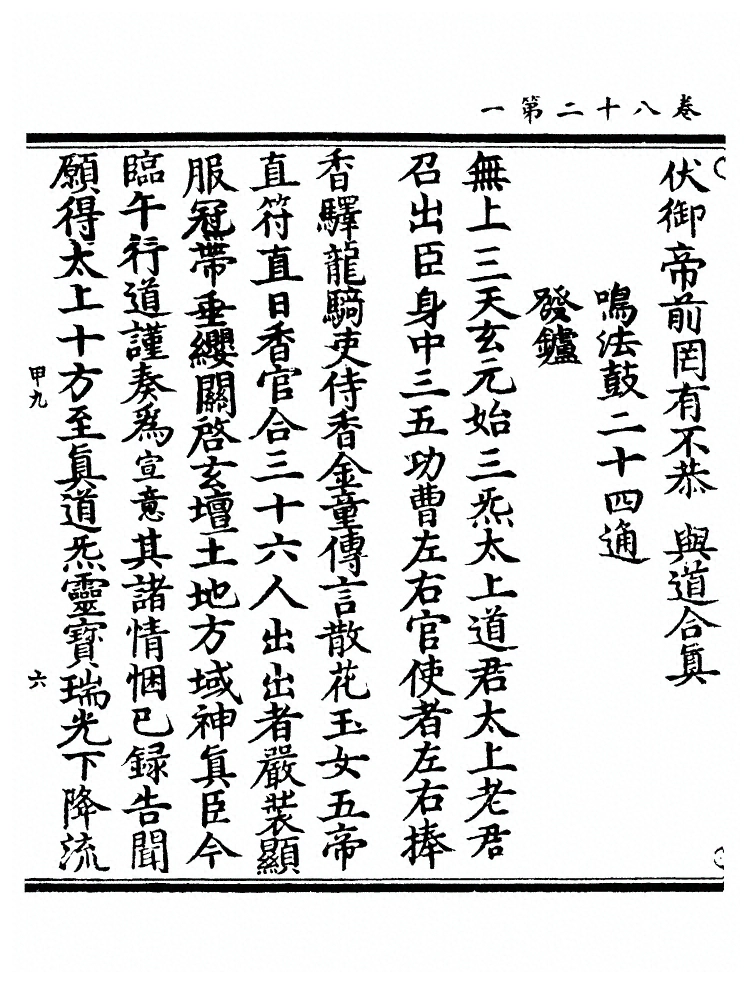 卷八十二第一
伏御帝前罔有不恭 與道合眞
鳴法鼓二十四通
發鑪
無上三天玄元始三炁太上道君太上老君
召出臣身中三五功曹左右官使者左右捧
香驛龍騎吏侍香金童傳言散花玉女五帝
直符直日香官合三十六人出出者嚴裝顯
服冠帶垂纓關啓玄壇土地方域神眞臣今
臨午行道謹奏爲宣意其諸情悃已錄告聞
願得太上十方至眞道炁靈寶瑞光下降流
甲九
六